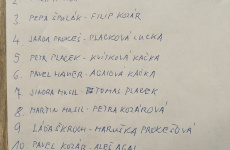 3 PEPA ŠPULÁK - FILIP KOZÁR
4 JARDA PROKEŠ - PLACKOVÁ LUCKA
5 PETR PLACEK - KVÍTKOVÁ KAČKA
6 PAVEL HANER - AGAIOVA KAČKA
7 JINDRA MUSIL - TOMAL PLACEK
8 MARTIN MUSIL - PETRA KOZÁROVÁ
9 LÁĎA ŠKROCH - MARUŠKA PROKEŠOVÁ
10 PAVEL KOZÁR - ALEŠ AGAI